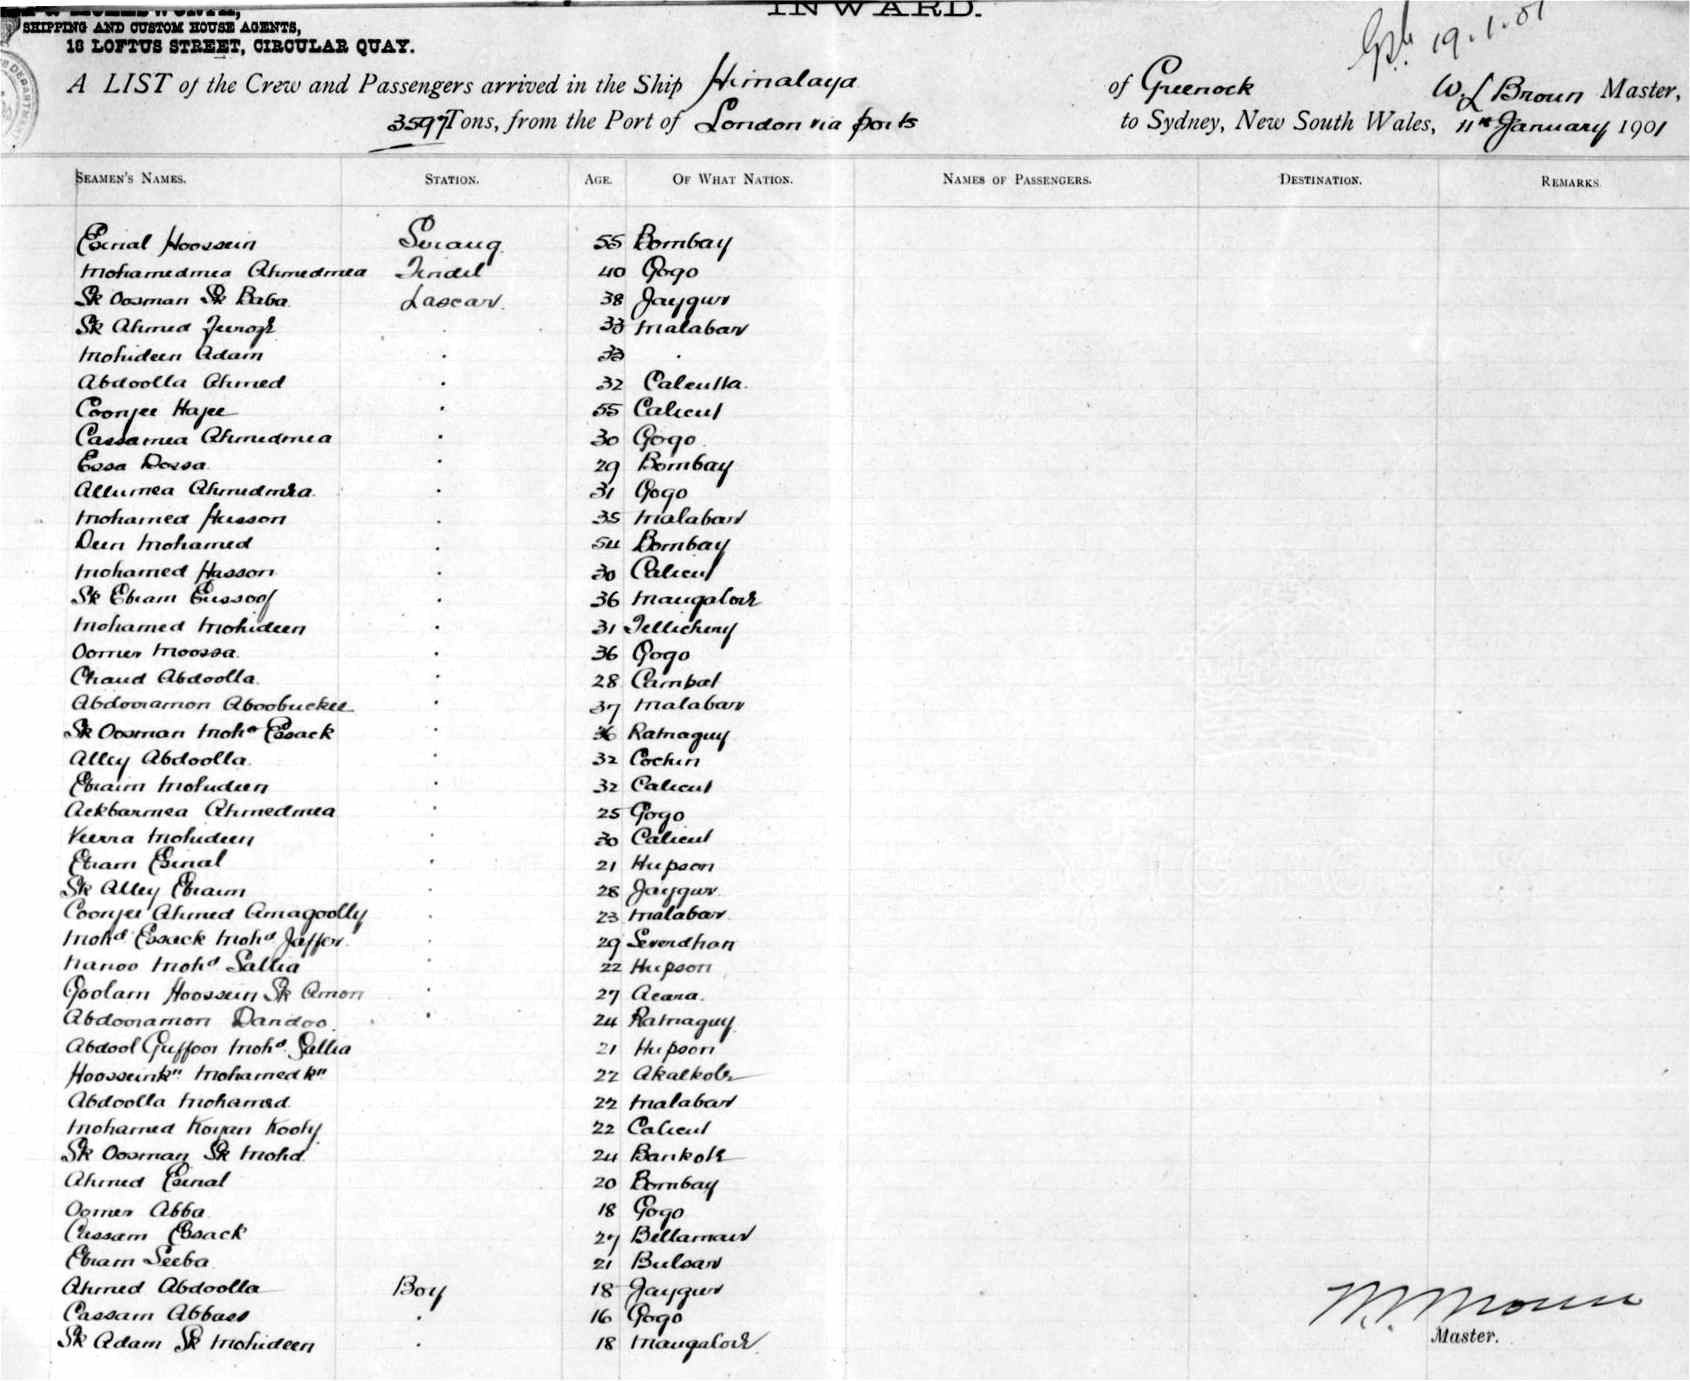 INWARD.
SHIPPING AND CUSTOM HOUSE AGENTS,
16 LOFTUS STREET, CIRCULAR QUAY.
19.1.01
A LIST of the Crew and Passengers arrived in the Ship Himalaya of Greenock W. L Brown Master,
3597 Tons, from the Port of London via ports to Sydney, New South Wales, 11th January 1901
SEAMEN'S NAMES. STATION. AGE. OF WHAT NATION. NAMES OF PASSENGERS. DESTINATION. REMARKS
Esinal Hoossein Serang 55 Bombay
Mohamedmea Ahmedmea Tindel 40 Gogo
Sk Oosman Sk Baba Lascar 38 Jaygur
Sk Ahmed 33 Malabar
Mohideen Adam . 33 .
Abdoolla Ahmed . 32 Calcutta.
Coonjee Hajee . 55 Calicut
Cassamea Ahmedmea . 30 Gogo
Essa Dossa . 29 Bombay
Allumea Ahmedmea . 31 Gogo
Mohamed Husson . 35 Malabar
Deen Mohamed . 54 Bombay
Mohamed Hasson . 30 Calicut
Sk Ebram Eussoof . 36 Mangalore
Mohamed Mohideen . 31 Tellichery
Oomer Moossa . 36 Gogo
Chand Abdoolla . 28 Cambat
Abdooramon Aboobucker . 37 Malabar
Sk Oosman Mohd Essack . 36 Ratnaguy
Alley Abdoolla . 32 Cochin
Ebraim Mohideen . 32 Calicut
Ackbarmea Ahmedmea . 25 Gogo
Veerra Mohideen . 30 Calicut
Ebram Esinal . 21 Hupson
Sk Alley Ebraim . 28 Jaygur
Coonjee Ahmed Amagoolly . 23 Malabar
Mohd Essack Mohd Jaffer . 29 Severdhan
Nanoo Mohd Sallia . 22 Hupson
Goolam Hoossein Sk Amon . 27 Acara.
Abdooramon Dandoo . 24 Ratnaguy
Abdool Guffoor Mohd Sallia 21 Hupson
Hoosseinkn Mohamedkn 22 Akalkote
Abdoolla Mohamed 22 Malabar
Mohamed Koyan Kooty 22 Calicut
Sk Oosman Sk Mohd 24 Bankote
Ahmed Esinal 20 Bombay
Oomer Abba 18 Gogo
Cussam Essack 27 Bellamaur
Ebram Seeba 21 Bulsar
Ahmed Abdoolla Boy 18 Jaygur
Cassam Abbass . 16 Gogo
Sk Adam Sk Mohideen . 18 Mangalore
Master.